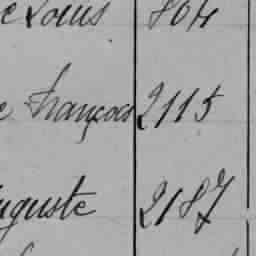 e Louis 804
e François 2115
uguste 2187